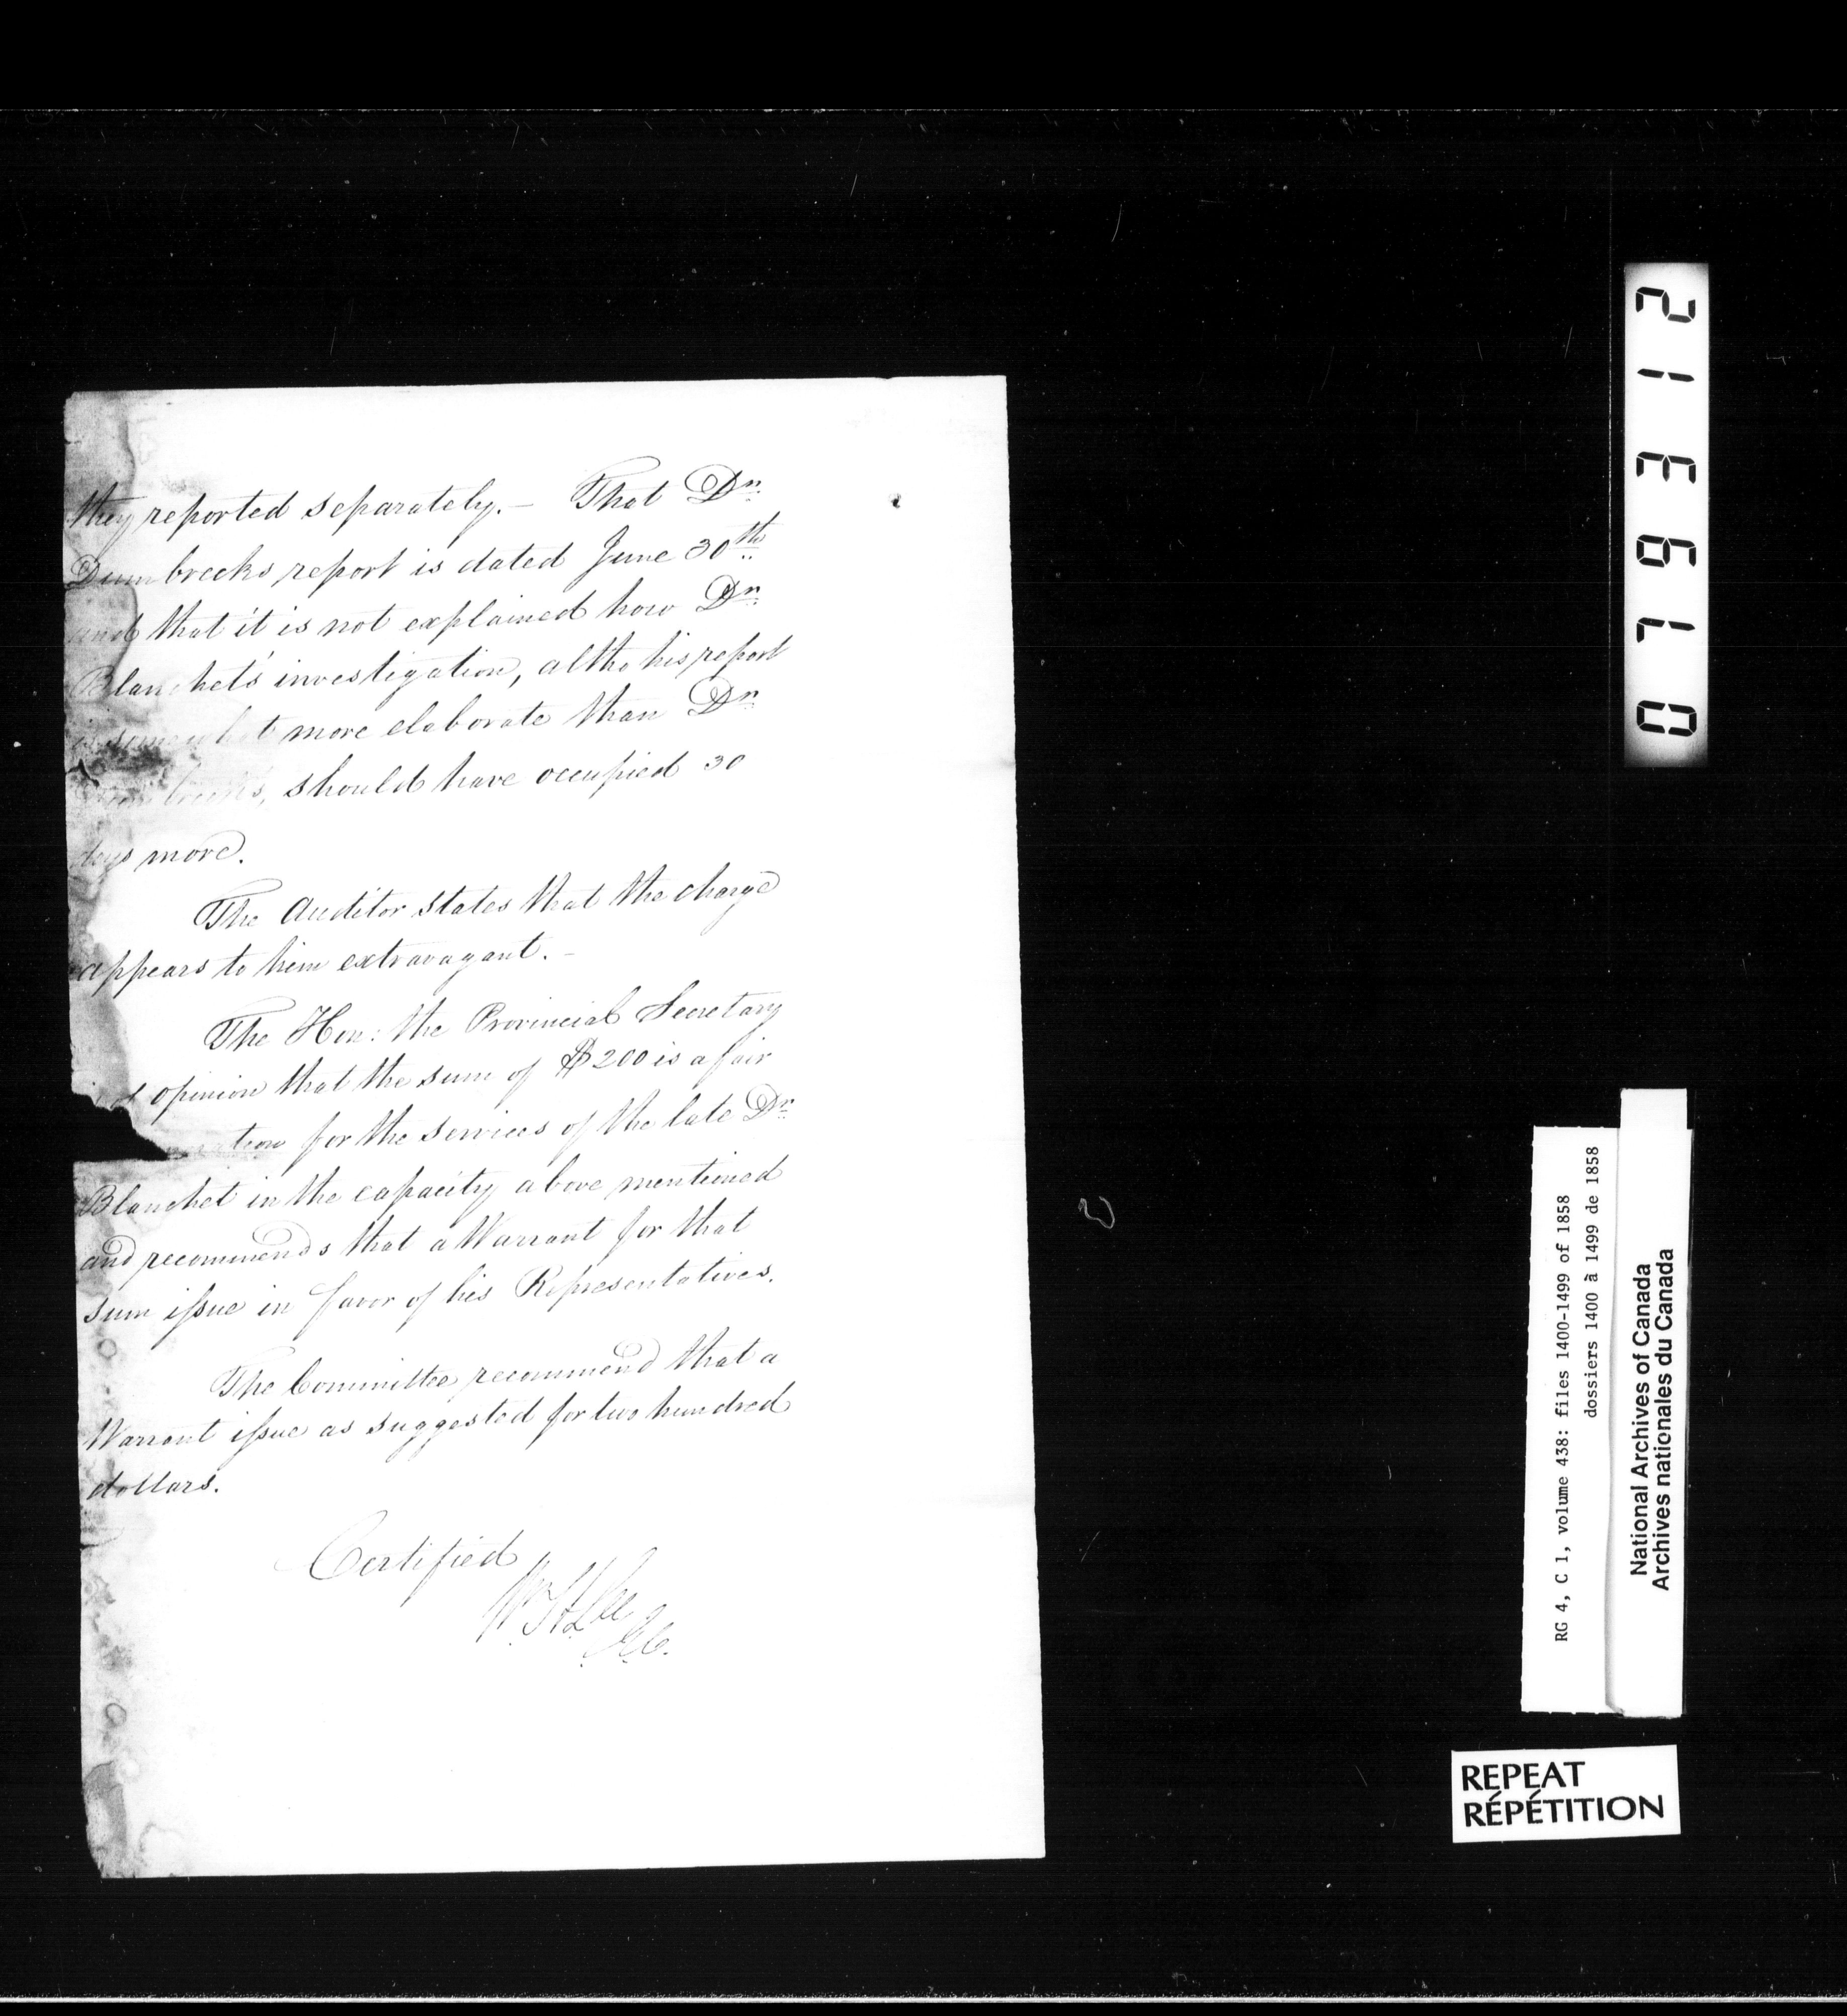 they reported separately. — That Dr.
Dumbrecks report is dated June 30th
and that it is not explained how Dr.
Blanchet's investigation, altho his report
is somewhat more elaborate than Dr.
Dumbreck's, should have occupied 30
days more.
The Auditor states that the charge
appears to him extravagant. —
The Hon: the Provincial Secretary
is of opinion that the sum of $200 is a fair
for the services of the late Dr.
Blanchet in the capacity above mentioned
and recommends that a Warrant for that
sum issue in favor of his Representatives.
The Committee recommend that a
Warrant issue as suggested for two hundred
dollars.
Certified
Wm H Lee
076312
RG 4, C 1, volume 438: files 1400-1499 of 1858
dossiers 1400 à 1499 de 1858
National Archives of Canada
Archives nationales du Canada
REPEAT
RÉPÉTITION